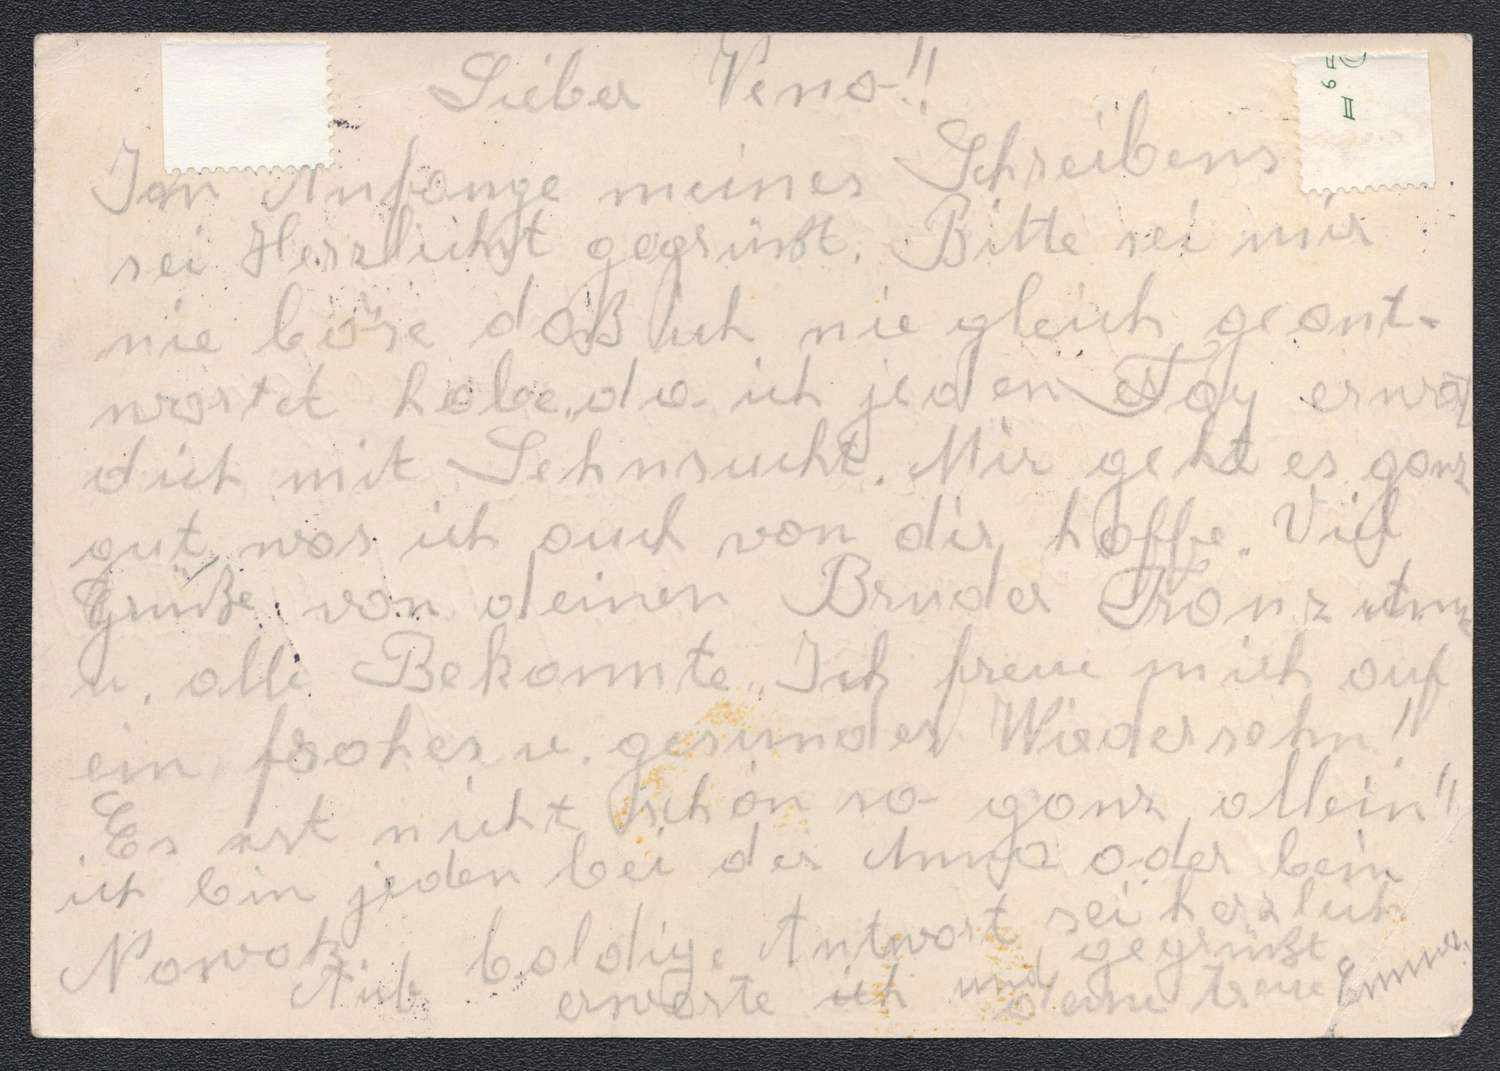 Lieber Veno!!
Im Anfange meines Schreibens
sei Herzlichst gegrüßt. Bitte sei mir
nie böse daß ich nie gleich geant-
wortet habe, da ich jeden Tag erwart
dich mit Sehnsucht. Mir geht es ganz
gut, was ich auch von dir hoffe. Viel
Grüße von deinen Bruder Franz
u. alle Bekannte. Ich freue mich auf
ein frohes u. gesundes Wiedersehn!!
Es ist nicht schön so ganz allein!!
ich bin jeden bei der Anna oder beim
Nowak. Auf baldige Antwort sei herzlich gegrüßt
erwarte ich und deine treue Emma.
II 6